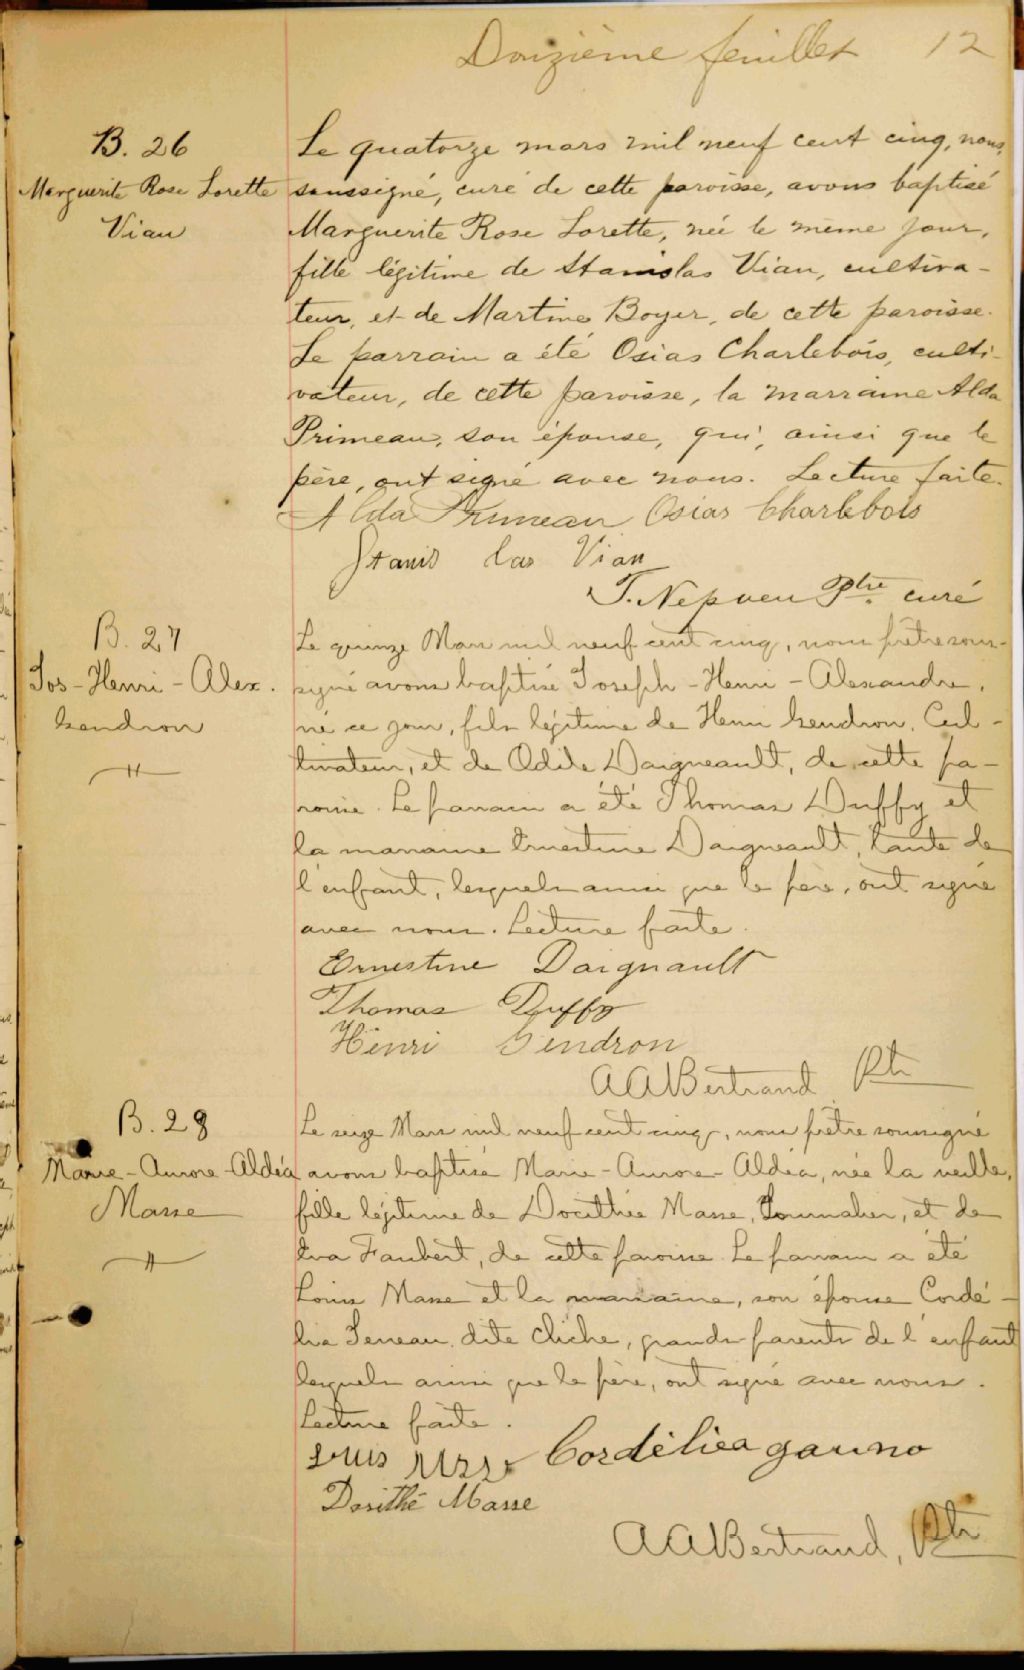 Douzième feuillet 12
B. 26
Marguerite Rose Lorette
Viau
Le quatorze mars mil neuf cent cinq, nous,
soussigné, curé de cette paroisse, avons baptisé
Marguerite Rose Lorette, née le même jour,
fille légitime de Stanislas Viau, cultiva-
teur, et de Martine Boyer, de cette paroisse.
Le parrain a été Osias Charlebois, culti-
vateur, de cette paroisse, la marraine Alda
Primeau, son épouse, qui, ainsi que le
père, ont signé avec nous. Lecture faite.
Alda Primeau Osias Charlebois
Stanis las Viau
T. Nepveu Ptre curé
B. 27
Jos-Henri-Alex.
Gendron
Le quinze Mars mil neuf cent cinq, nous prêtre sous-
signé avons baptisé Joseph-Henri-Alexandre,
né ce jour, fils légitime de Henri Gendron, Cul-
tivateur, et de Odile Daigneault, de cette pa-
roisse. Le parrain a été Thomas Duffy et
la marraine Ernestine Daigneault, tante de
l'enfant, lesquels ainsi que le père, ont signé
avec nous. Lecture faite.
Ernestine Daignault
Thomas Duffy
Henri Gendron
AABertrand Ptr
B. 28
Marie-Aurore-Aldéa
Masse
Le seize Mars mil neuf cent cinq, nous prêtre soussigné
avons baptisé Marie-Aurore-Aldéa, née la veille,
fille légitime de Docithée Masse, Journalier, et de
Eva Faubert, de cette paroisse. Le parrain a été
Louis Masse et la marraine, son épouse Cordé-
lia dite Cliche, grands-parents de l'enfant
lesquels ainsi que le père, ont signé avec nous.
Lecture faite.
Louis Cordéliea gauno
Dosithé Masse
AABertrand, Ptr